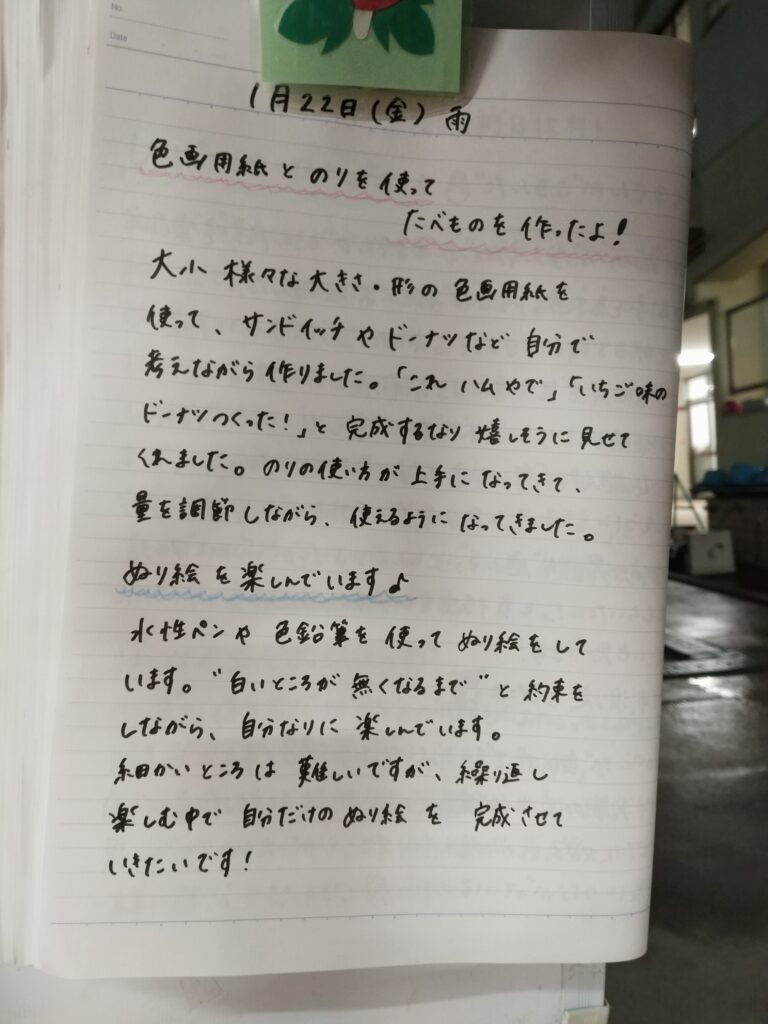 No.
Date
1月22日(金) 雨
色画用紙とのりを使って
たべものを作ったよ!
大小様々な大きさ・形の色画用紙を
使って、サンドイッチやドーナツなど自分で
考えながら作りました。「これハムやで」「いちご味の
ドーナツつくった!」と完成するなり嬉しそうに見せて
くれました。のりの使い方が上手になってきて、
量を調節しながら、使えるようになってきました。
ぬり絵を楽しんでいます♪
水性ペンや色鉛筆を使ってぬり絵をして
います。"白いところが無くなるまで"と約束を
しながら、自分なりに楽しんでいます。
細かいところは難しいですが、繰り返し
楽しむ中で自分だけのぬり絵を完成させて
いきたいです!